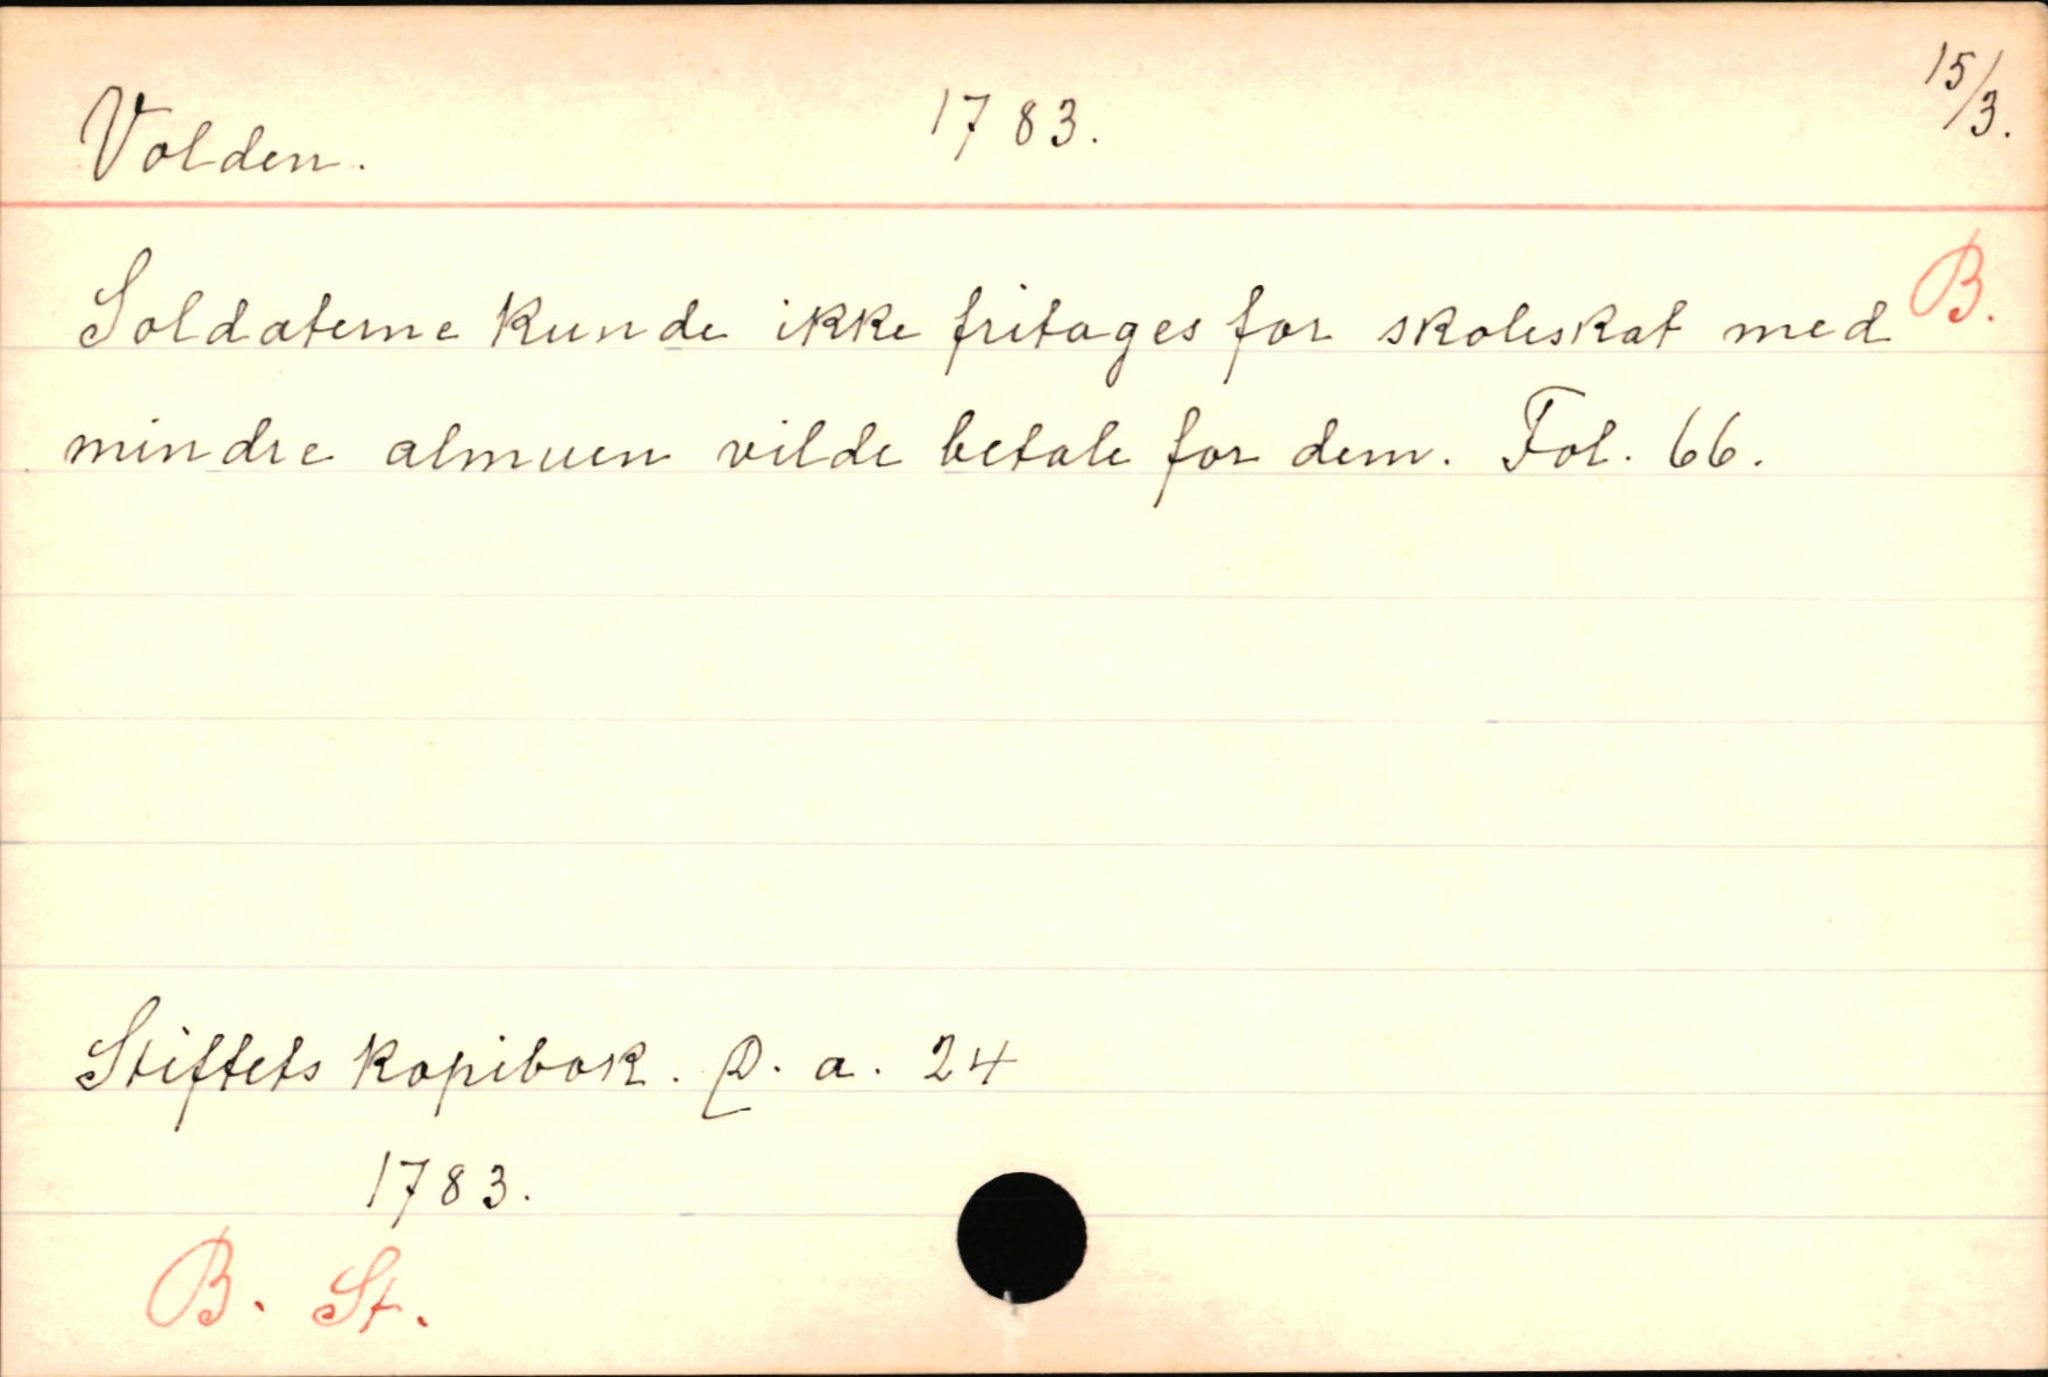 Volden. 1783. 15/3.
B.
Soldaterne kunde ikke fritages for skoleskat med
mindre almuen vilde betale for dem. Fol. 66.
Stiftets kopibok. a. 24
1783.
B. St.